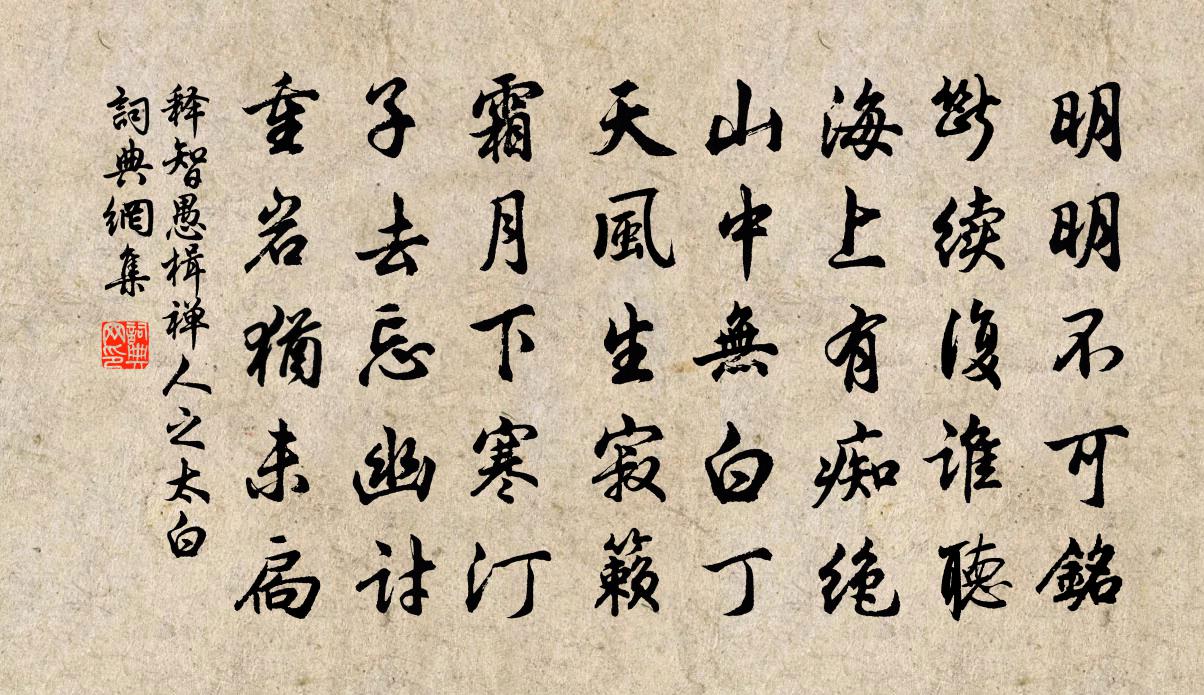 明明不可銘
斷续復谁聽
海上有痴绝
山中無白丁
天風生寂籟
霜月下寒汀
子去忘幽討
重岩猶未扃
释智愚楫禅人之太白
詞典網集